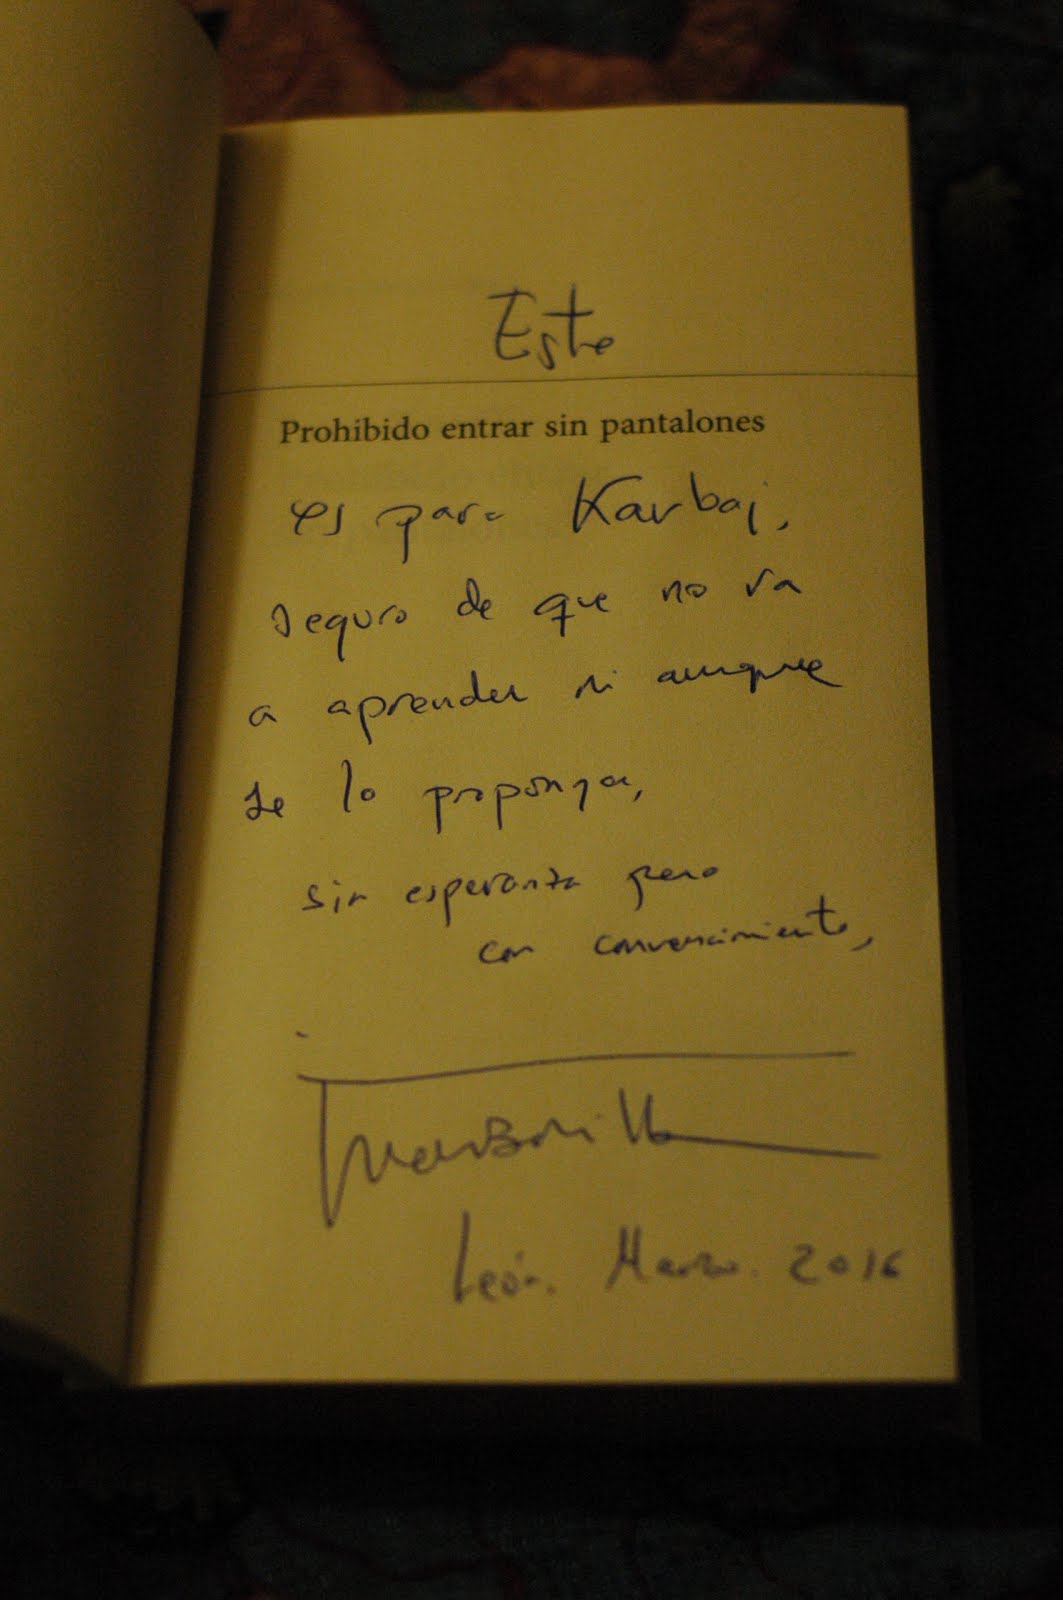 Este
Prohibido entrar sin pantalones
es para Karbaj,
seguro de que no va
a aprender ni aunque
se lo proponga,
sin esperanza pero
con convencimiento,
Juan Bonilla
León. Marzo. 2016